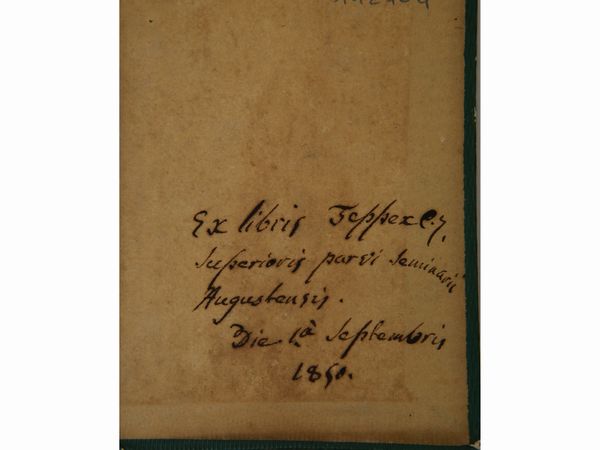 Ex libris Feppex C.J.
superioris parvi seminarii
Augustensis.
Die 1.ª Septembris
1850.